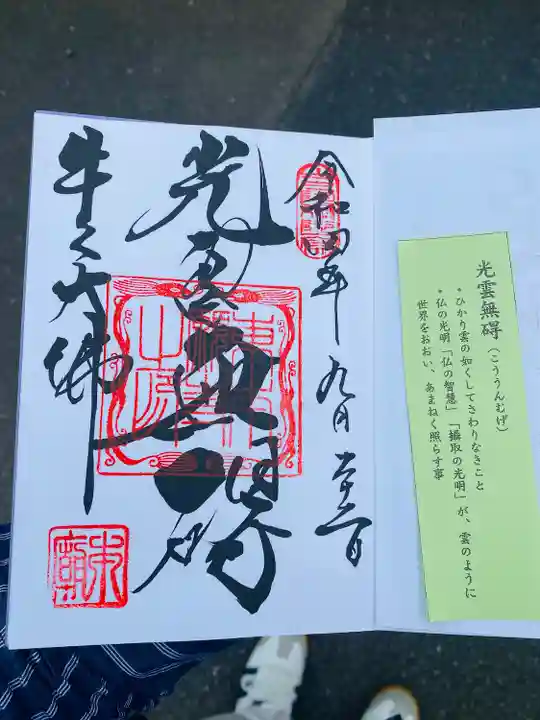 光雲無碍（こううんむげ）
・ひかり雲の如くしてさわりなきこと
・仏の光明「仏の智慧」「摂取の光明」が、雲のように
世界をおおい、あまねく照らす事
令和四年九月二十二日
光雲無碍
牛久大佛